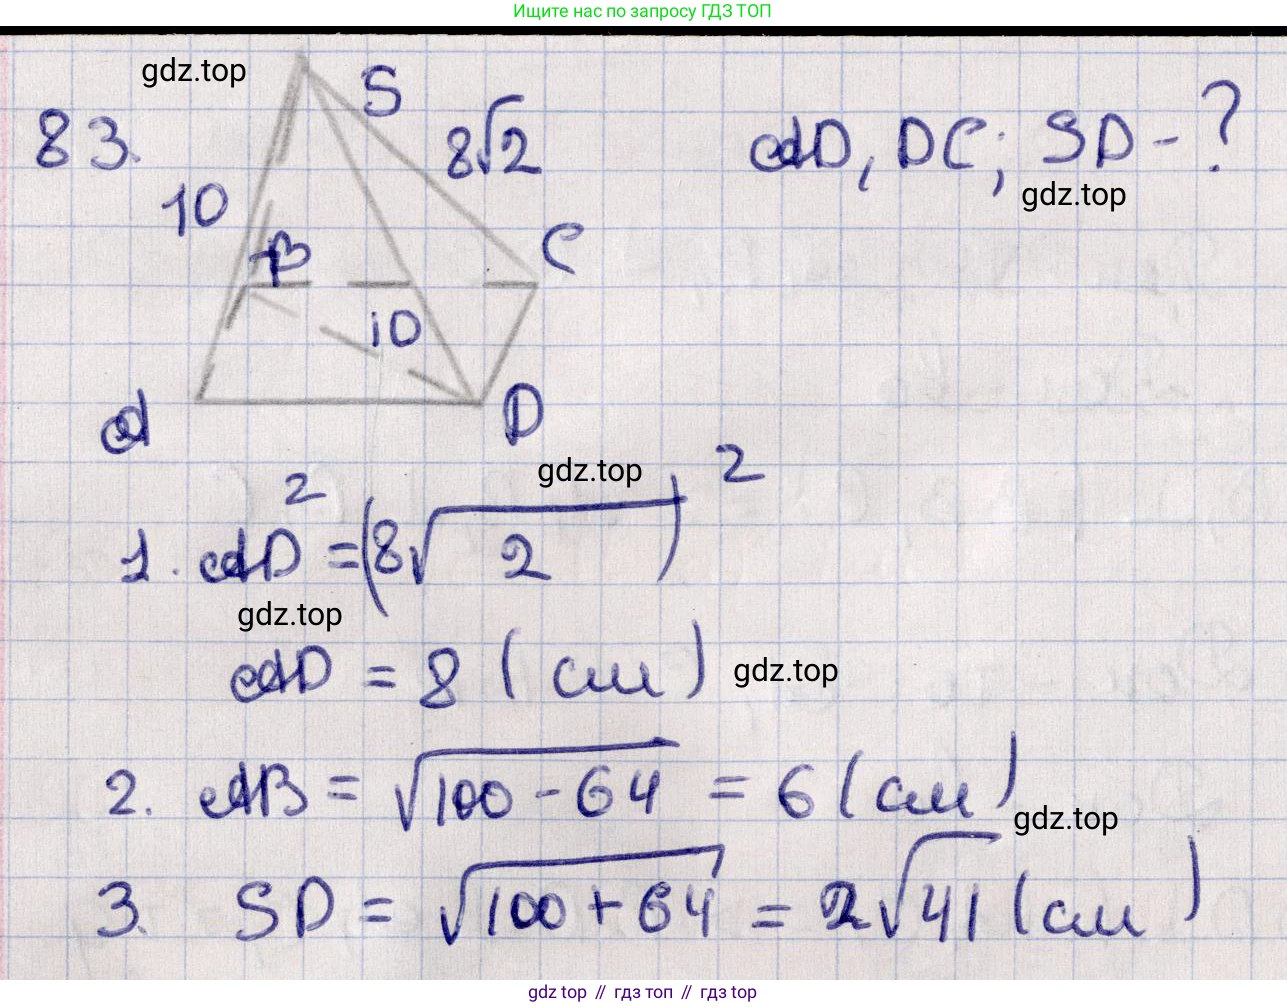 Ищите нас по запросу ГДЗ ТОП
gdz.top
83.
S
8√2
AD, DC; SD - ?
gdz.top
10
B
C
10
A
D
gdz.top
1. AD² = (8√2)²
gdz.top
AD = 8 (см)
gdz.top
2. AB = √100 - 64 = 6 (см)
gdz.top
3. SD = √100 + 64 = 2√41 (см)
gdz top // гдз топ // gdz top